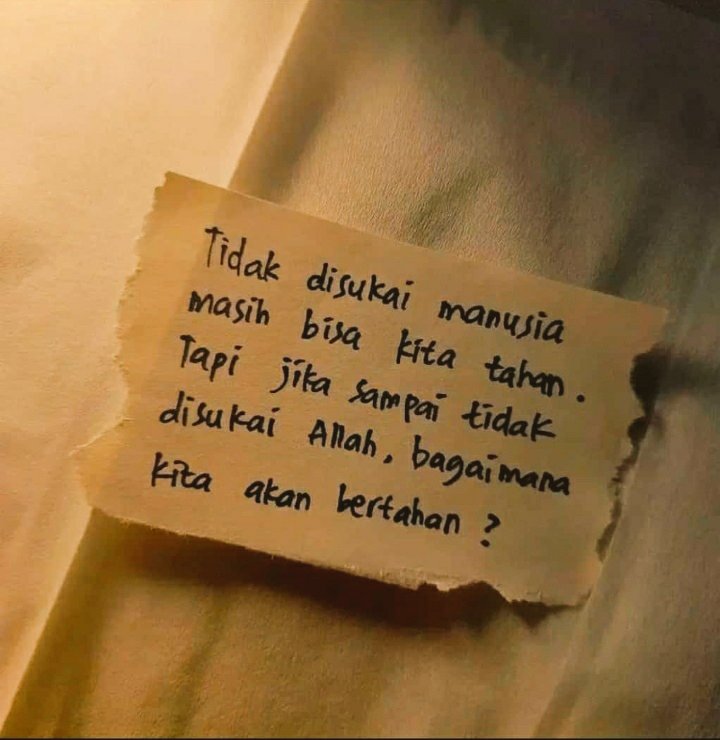 Tidak disukai manusia
masih bisa kita tahan.
Tapi jika sampai tidak
disukai Allah, bagaimana
kita akan bertahan ?